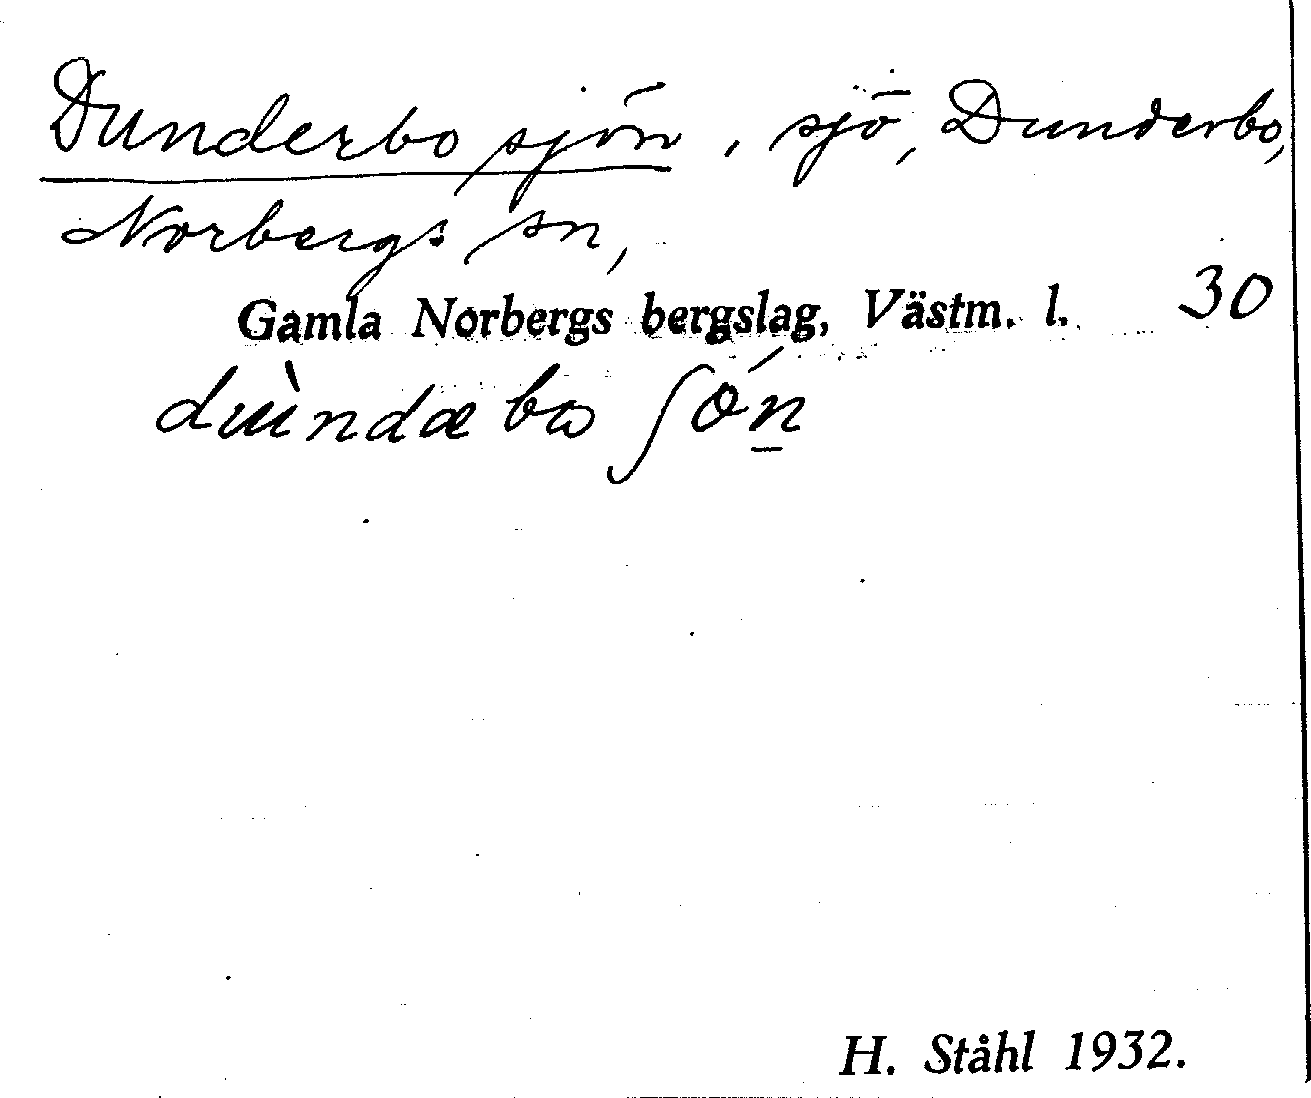 Dunderbosjön, sjö, Dunderbo,
Norbergs sn,
Gamla Norbergs bergslag, Västm. l. 30
H. Ståhl 1932.